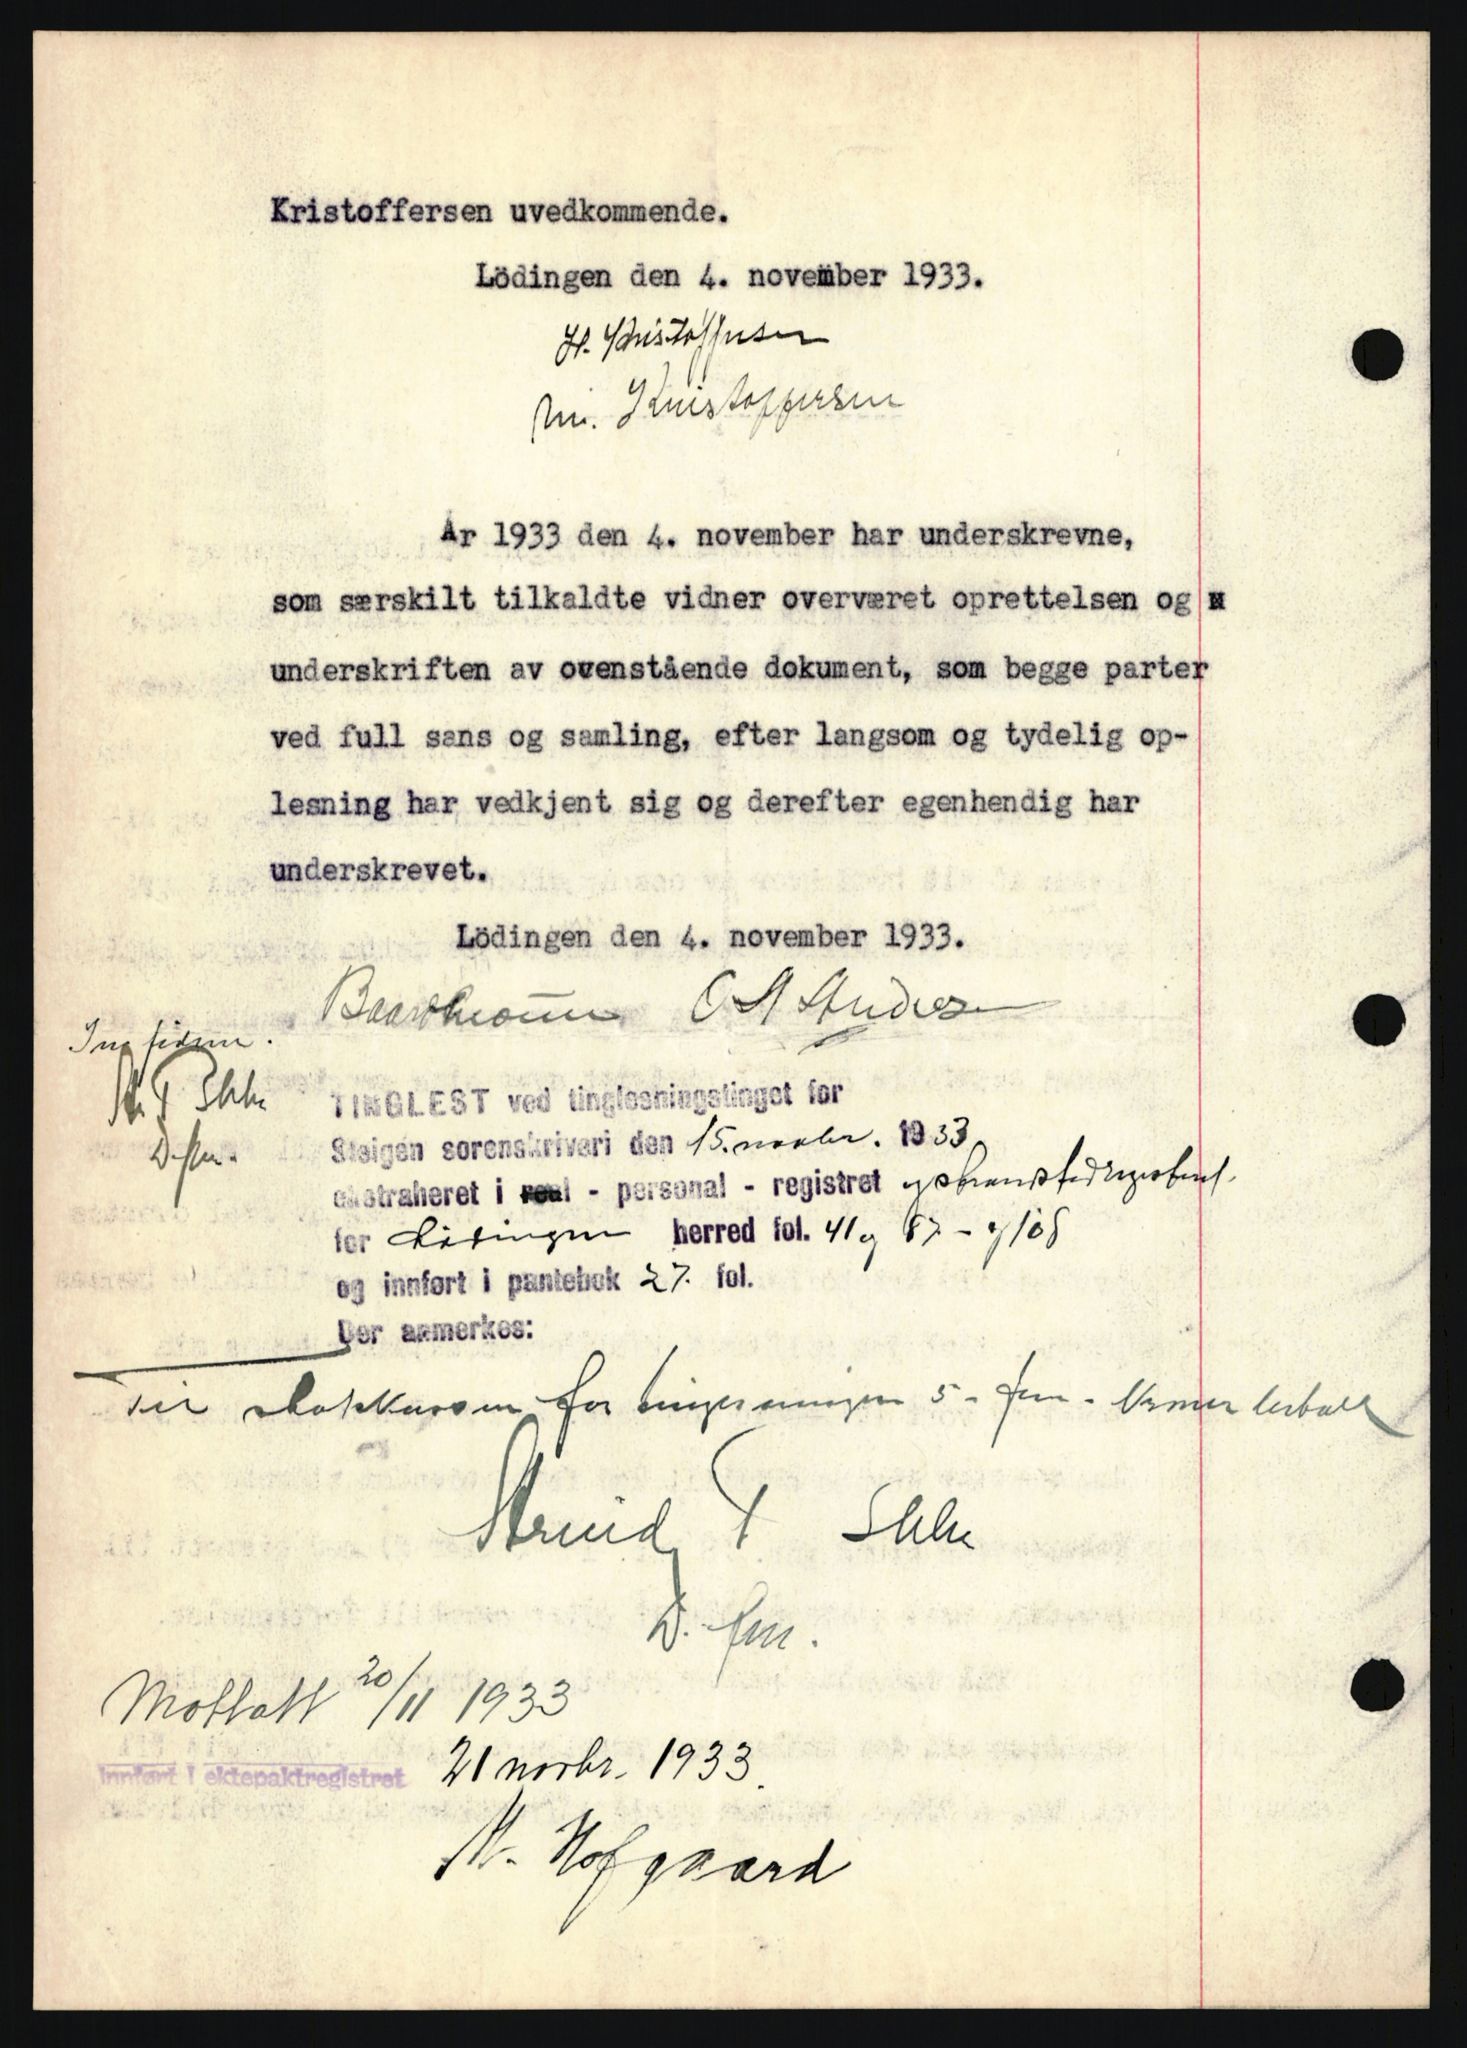 Kristoffersen uvedkommende.
Lödingen den 4. november 1933.
H. Kristoffersen
M. Kristoffersen
År 1933 den 4. november har underskrevne,
som særskilt tilkaldte vidner overværet oprettelsen og
underskriften av ovenstående dokument, som begge parter
ved full sans og samling, efter langsom og tydelig op-
lesning har vedkjent sig og derefter egenhendig har
underskrevet.
Lödingen den 4. november 1933.
TINGLEST ved tinglesningstinget for
Steigen sorenskriveri den 15. novbr. 1933
ekstraheret i real - personal - registret og
for Lødingen herred fol. 41 og 87 - og 108
og innført i pantebok 27. fol.
Der anmerkes:
for 5 - fem - kroner
D. fm.
Mottatt 20/11 1933
Innført i ektepaktregistret 21 novbr. 1933.
M. Hofgaard